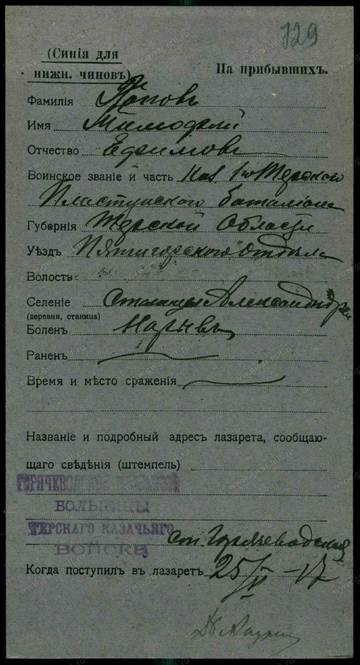 129
(Синія для
нижн. чиновъ)
На прибывшихъ.
Фамилія Поповъ
Имя Тимофей
Отчество Ефимовъ
Воинское званіе и часть Каз. 1го Терского
Пластунского баталіона
Губернія Терской Области
Уѣздъ Пятигорского Отдѣла
Волость
Селеніе Станицы Александрій
(деревня, станица)
Боленъ Нарывъ
Раненъ
Время и мѣсто сраженія
Названіе и подробный адресъ лазарета, сообщаю-
щаго свѣдѣнія (штемпель)
БОЛЬНИЦЫ
ТЕРСКАГО КАЗАЧЬЯГО
ВОЙСКА
ст. Горячеводская
Когда поступилъ въ лазаретъ 25/V–17